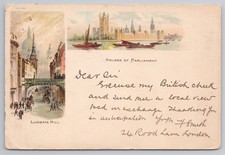 HOUSES OF PARLIAMENT
LUDGATE HILL
Dear Sir
Excuse my British cheek
and send me a local view
card in exchange Thanking you
in anticipation
24 Rood Lane London